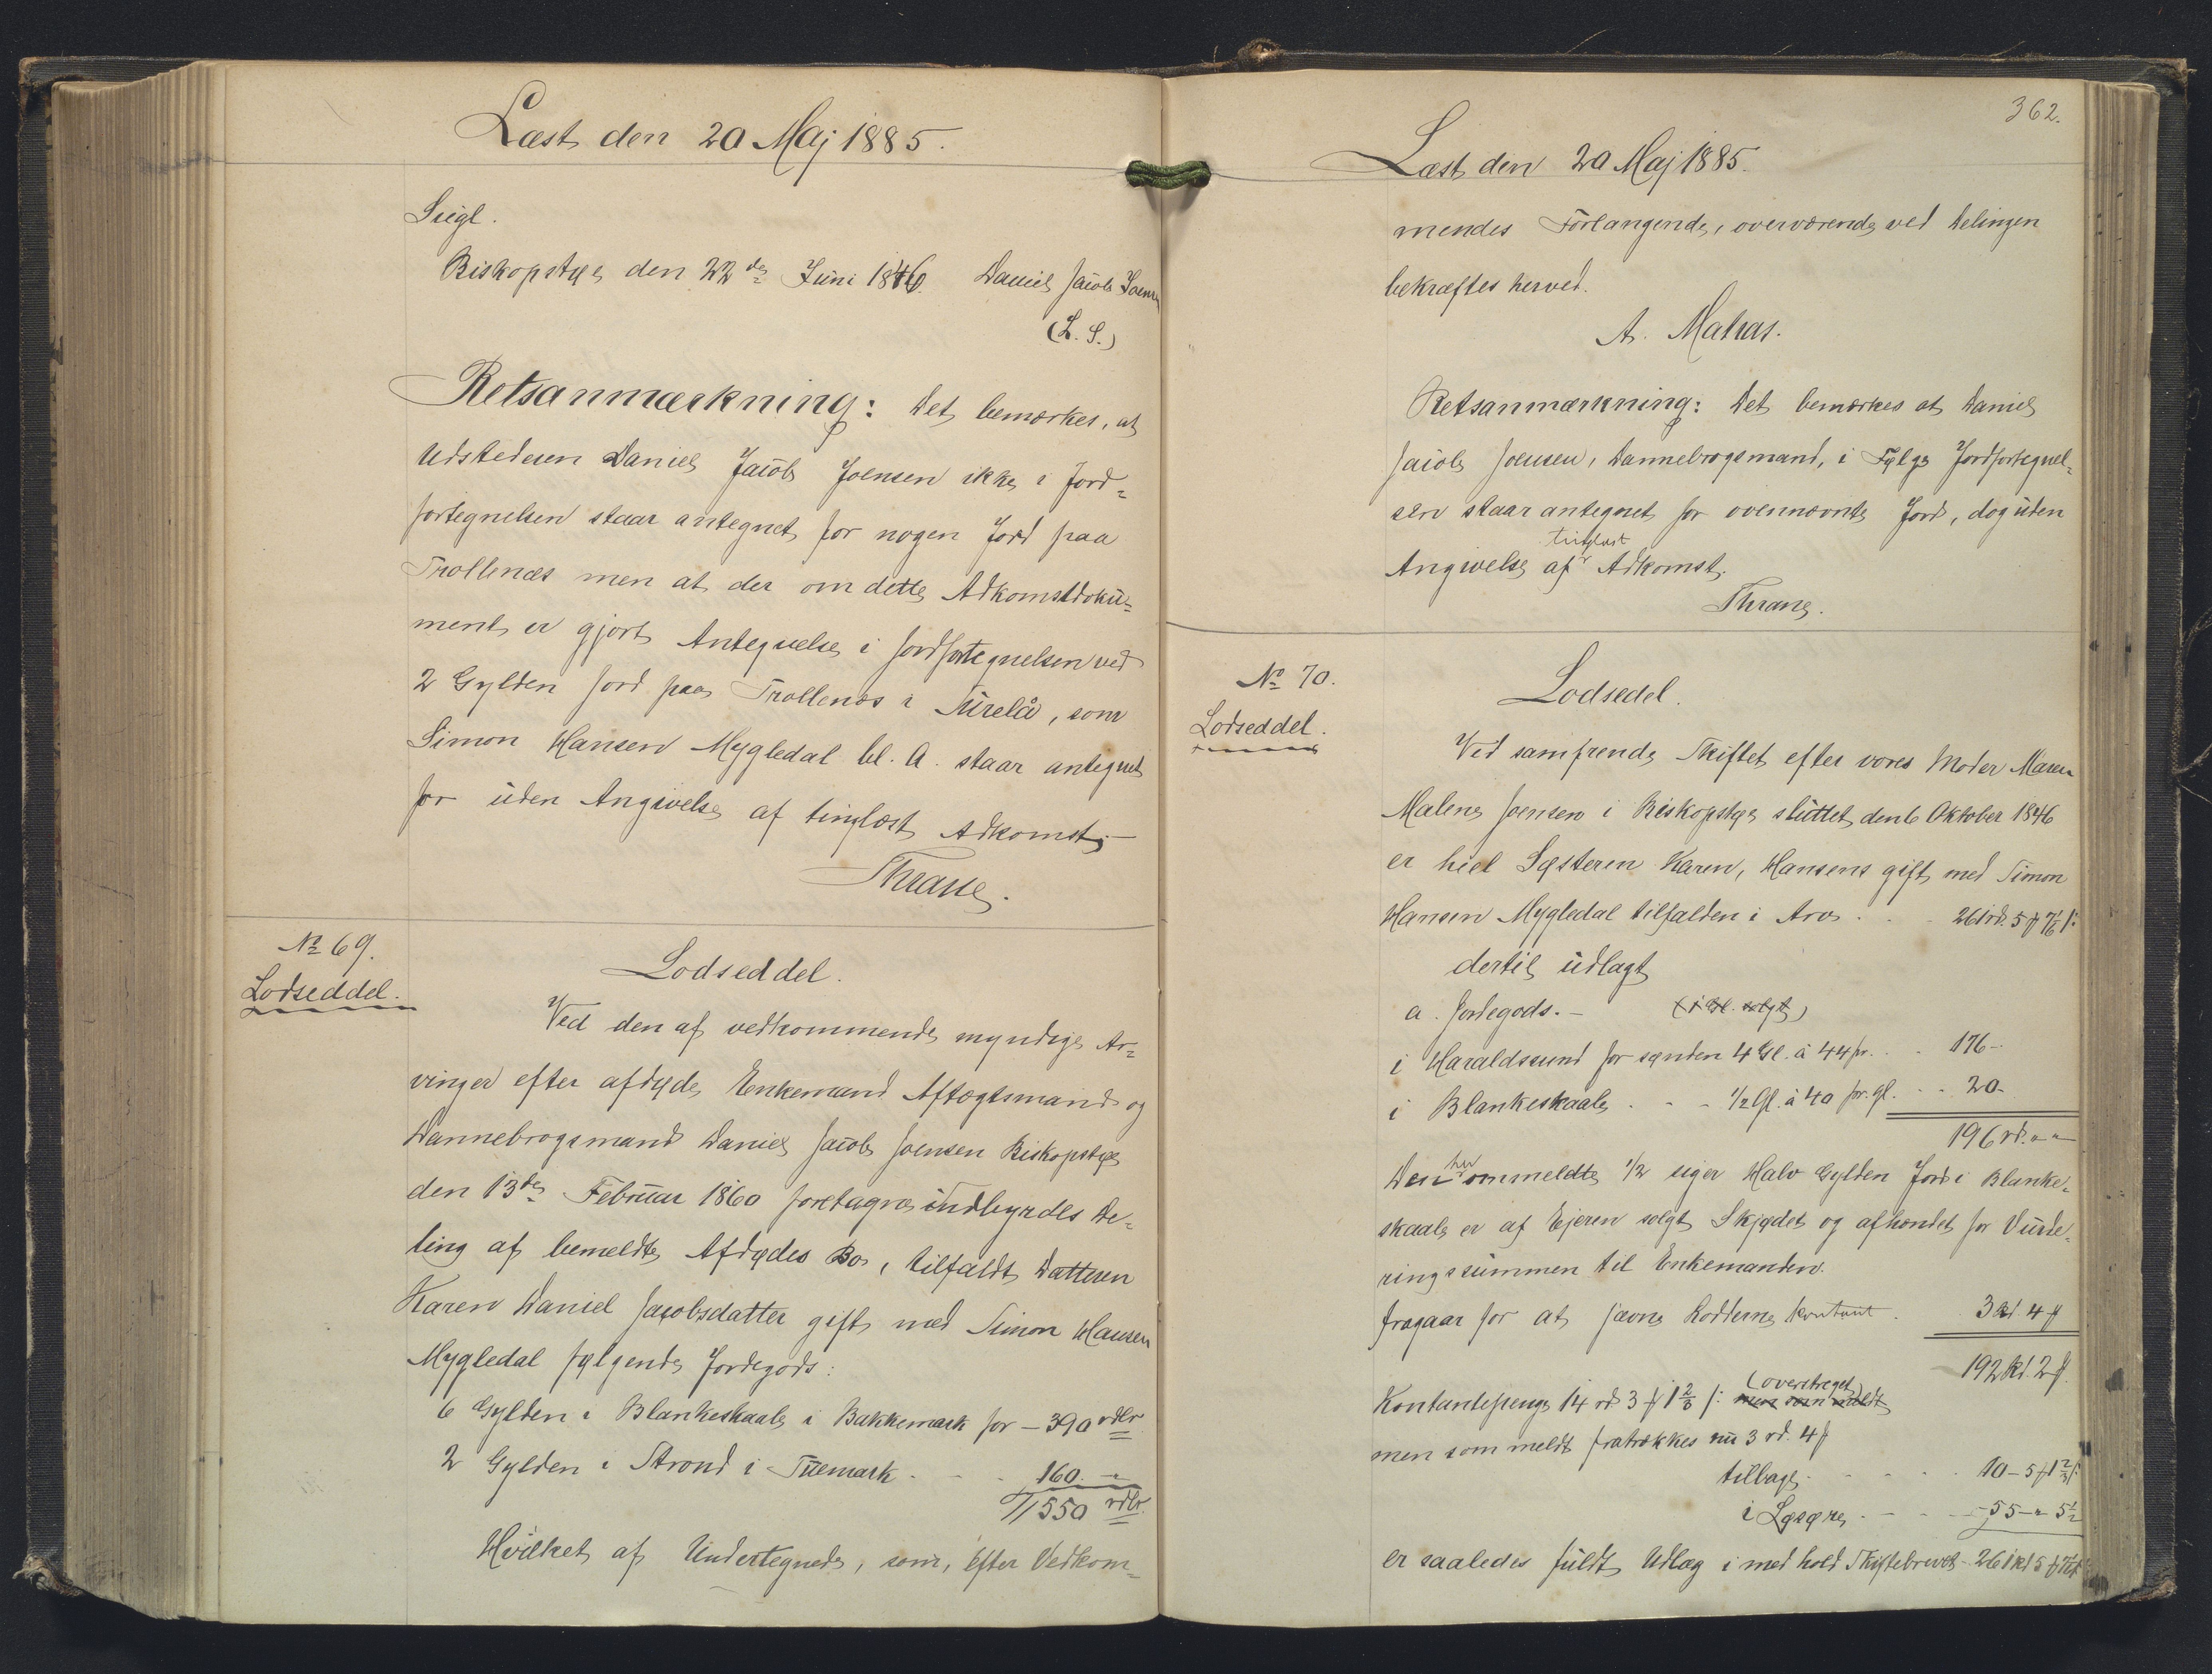 Læst den 20 Maj 1885.
Siegl.
Biskopstøe den 22de Juni 1846. Daniel Jacob Joensen
(L. S.)
Retsanmærkning: Det bemærkes, at
Udstederen Daniel Jacob Joensen ikke i Jord=
fortegnelsen staar antegnet for nogen Jord paa
Trollenæs men at der om dette Adkomstdoku=
ment er gjort Antegnelse i Jordfortegnelsen ved
2 Gylden Jord paa Trollenæs i , som
Simon Hansen Mygledal bl. A. staar antegnet
for uden Angivelse af tinglæst Adkomst;
Thrane.
No 69.
Lodseddel.
Lodseddel.
Ved den af vedkommende myndige Ar=
vinger efter afdøde Enkemand Aftægtsmand og
Dannebrogsmand Daniel Jacob Joensen Biskopstøe
den 13de Februar 1860 foretagne indbyrdes De=
ling af bemeldte Afdødes Bo, tilfaldt Datteren
Karen Daniel Jacobsdatter gift med Simon Hansen
Mygledal følgende Jordegods:
6 Gylden i Blankeskaale i Bakkemark for – 390 rdlr
2 Gylden i Strond i Tuemark . . . 160. "
550 rdlr.
Hvilket af Undertegnede, som, efter Vedkom=
362.
Læst den 20 Maj 1885.
mendes Forlangende, overværende ved Delingen
bekræftes herved.
A. Matras.
Retsanmærkning: Det bemærkes at Daniel
Jacob Joensen, Dannebrogsmand, i Følge Jordfortegnel=
sen staar antegnet for ovennævnte Jord, dog uden
tinglæst
Angivelse af Adkomst;
Thrane.
No 70.
Lodseddel.
Lodsedel.
Ved samfrende Skiftet efter vores Moder Maren
Malene Joensen i Biskopstøe sluttet den 6 Oktober 1846
er hiel Søsteren Karen, Hansens gift med Simon
Hansen Mygledal tilfalden i Arv . . 261 rd. 5 ꝑ 7 1/6 ſ:
dertil udlagt
a. Jordegods. – (i Bl. solgt)
i Haraldssund for sønden 4 Gl. à 44 pr. . . 176 –
i Blankeskaale . . – 1/2 Gl. à 40 pr. gl. . . 20 –
196 rd. " "
her
Den ommeldte 1/2 siger Halv Gylden Jord i Blanke=
skaale er af Ejeren solgt Skjødet og afhændet for Vurde=
ringssummen til Enkemanden.
fragaar for at jævne Lodderne kontant . 3 rd 4 ꝑ
192 rd. 2 ꝑ.
(overstreget)
Kontantepenge 14 rd 3 ꝑ 1 2/3 ſ: men som meldt
men som meldt fratrækkes nu 3 rd. 4 ꝑ
tilbage . . . . 10 – 5 ꝑ 1 2/3 ſ:
i Løsøre . – . – 55 – " 5 1/2
er saaledes fuldt Udlæg i medhold Skiftebrevet – 261 rd 5 ꝑ 7 1/6 ſ